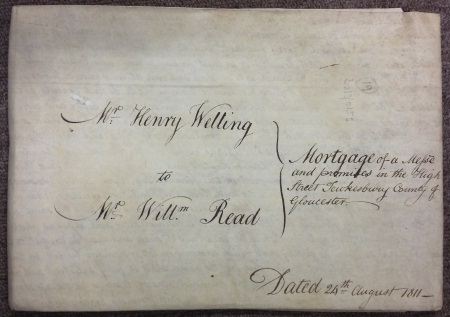 Mr. Henry Welling
to
Mr. Willm Read
Mortgage of a Messe
and premises in the High
Street Tewkesbury County of
Gloucester
Dated 24th August 1811